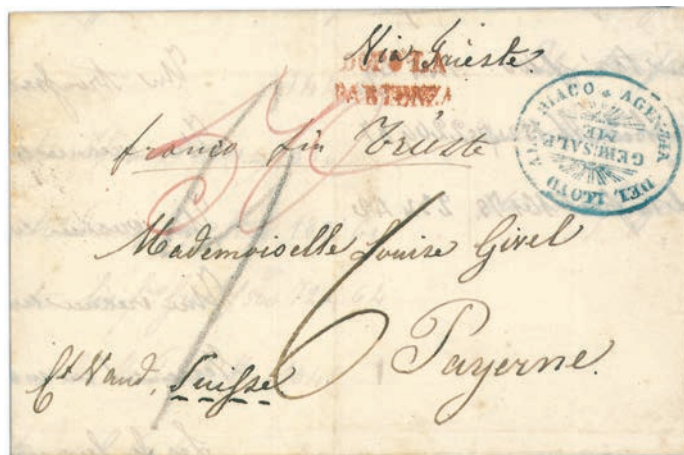 Via Trieste.
DOPO LA
PARTENZA
AGENZIA DEL LLOYD AUSTRIACO
GERUSALE
ME
franco fin Trieste
Mademoiselle Louise Givel
Payerne.
Ct Vaud, Suisse
6